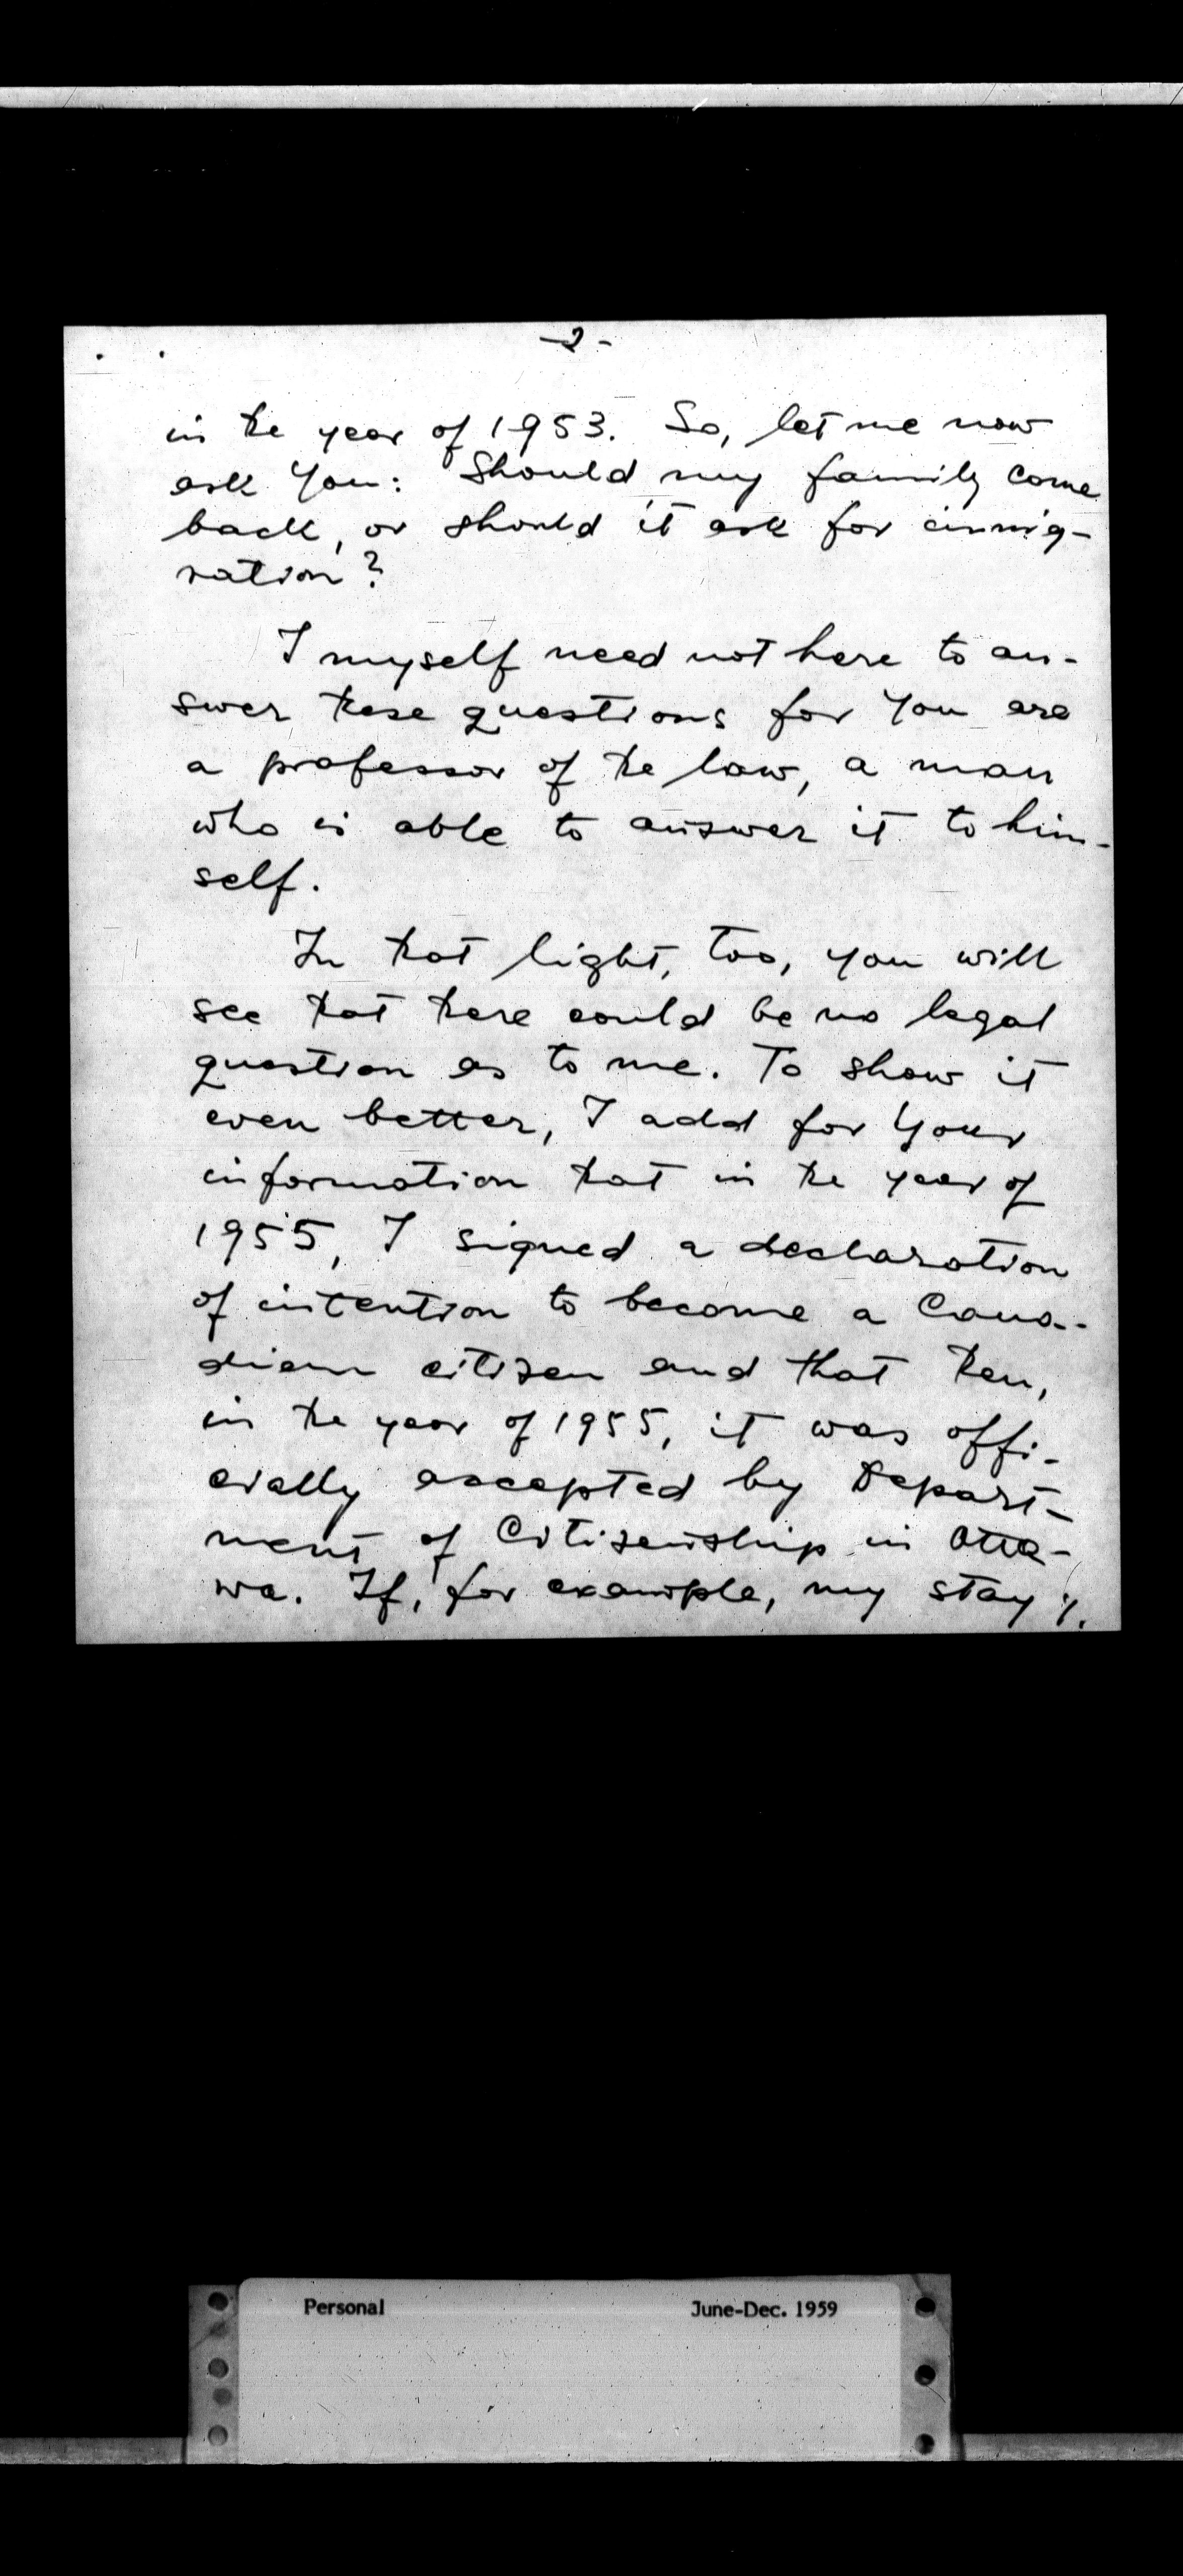 -2-
in the year of 1953. So, let me now
ask You: Should my family come
back, or should it ask for immig-
ration?
I myself need not here to an-
swer these questions for You are
a professor of the law, a man
who is able to answer it to him-
self.
In that light, too, you will
see that there could be no legal
question as to me. To show it
even better, I add for Your
information that in the year of
1955, I signed a declaration
of intention to become a Cana-
dian citizen and that then,
in the year of 1955, it was offi-
cially accepted by Depart-
ment of Citizenship in Otta-
wa. If, for example, my stay ./.
Personal June-Dec. 1959